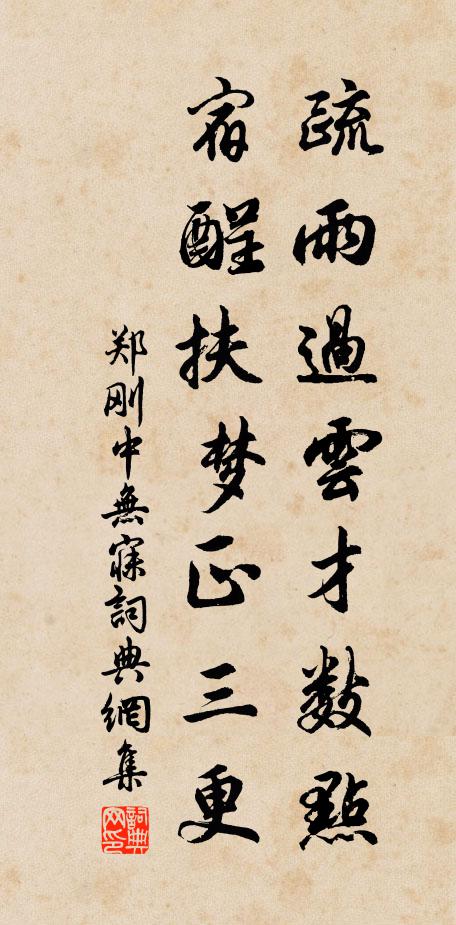 疏雨過雲才数點
宿醒扶梦正三更
郑刚中無寐詞典網集
詞典网印